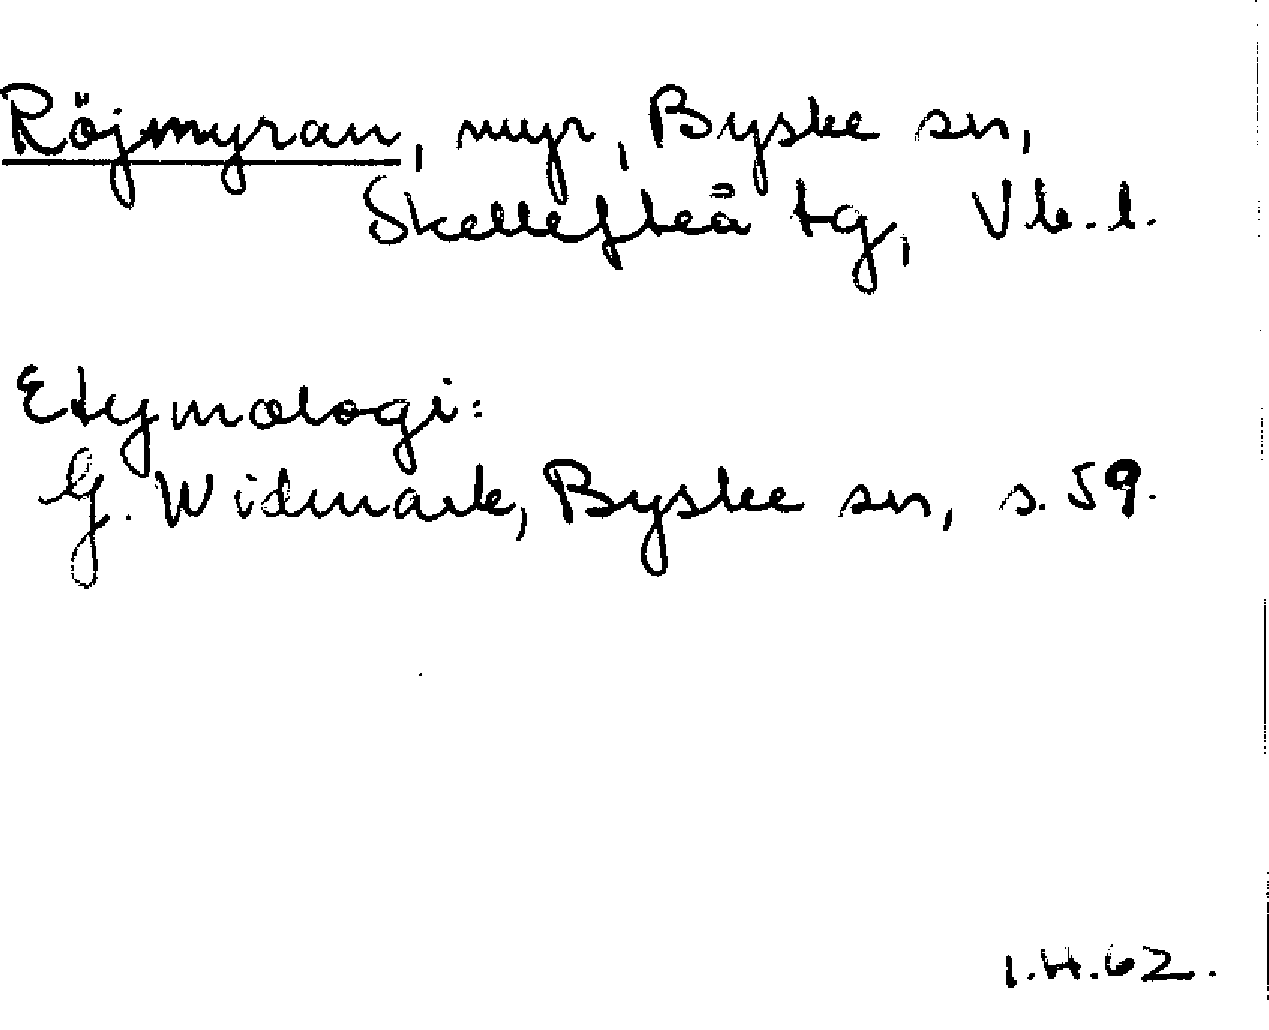 Röjmyran, myr, Byske sn,
Skellefteå tg, Vb.l.
Etymologi:
G. Widmark, Byske sn, s. 59.
I.H.62.